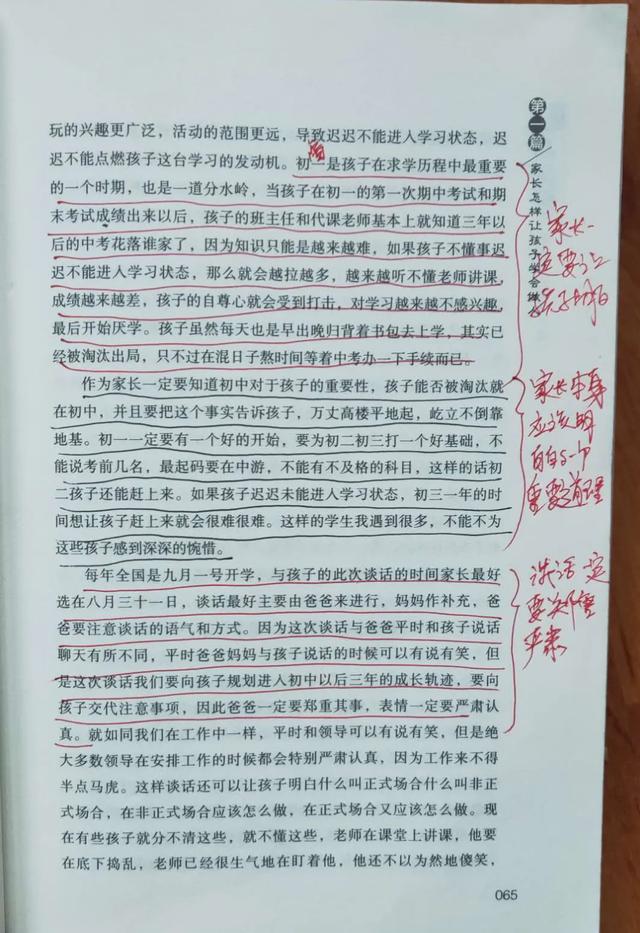 玩的兴趣更广泛，活动的范围更远，导致迟迟不能进入学习状态，迟
迟不能点燃孩子这台学习的发动机。初一是孩子在求学历程中最重要
的一个时期，也是一道分水岭，当孩子在初一的第一次期中考试和期
末考试成绩出来以后，孩子的班主任和代课老师基本上就知道三年以
后的中考花落谁家了，因为知识只能是越来越难，如果孩子不懂事迟
迟不能进入学习状态，那么就会越拉越多，越来越听不懂老师讲课，
成绩越来越差，孩子的自尊心就会受到打击，对学习越来越不感兴趣，
最后开始厌学。孩子虽然每天也是早出晚归背着书包去上学，其实已
经被淘汰出局，只不过在混日子熬时间等着中考办一下手续而已。
作为家长一定要知道初中对于孩子的重要性，孩子能否被淘汰就
在初中，并且要把这个事实告诉孩子，万丈高楼平地起，屹立不倒靠
地基。初一一定要有一个好的开始，要为初二初三打一个好基础，不
能说考前几名，最起码要在中游，不能有不及格的科目，这样的话初
二孩子还能赶上来。如果孩子迟迟未能进入学习状态，初三一年的时
间想让孩子赶上来就会很难很难。这样的学生我遇到很多，不能不为
这些孩子感到深深的惋惜。
每年全国是九月一号开学，与孩子的此次谈话的时间家长最好
选在八月三十一日，谈话最好主要由爸爸来进行，妈妈作补充，爸
爸要注意谈话的语气和方式。因为这次谈话与爸爸平时和孩子说话
聊天有所不同，平时爸爸妈妈与孩子说话的时候可以有说有笑，但
是这次谈话我们要向孩子规划进入初中以后三年的成长轨迹，要向
孩子交代注意事项，因此爸爸一定要郑重其事，表情一定要严肃认
真。就如同我们在工作中一样，平时和领导可以有说有笑，但是绝
大多数领导在安排工作的时候都会特别严肃认真，因为工作来不得
半点马虎。这样谈话还可以让孩子明白什么叫正式场合什么叫非正
式场合，在非正式场合应该怎么做，在正式场合又应该怎么做。现
在有些孩子就分不清这些，就不懂这些，老师在课堂上讲课，他要
在底下捣乱，老师已经很生气地在盯着他，他还不以为然地傻笑，
065
第一篇
家长怎样让孩子学会
家长一
定要让
孩子明白
家长本身
应该明
白的一个
重要道理
谈话一定
要郑重
严肃